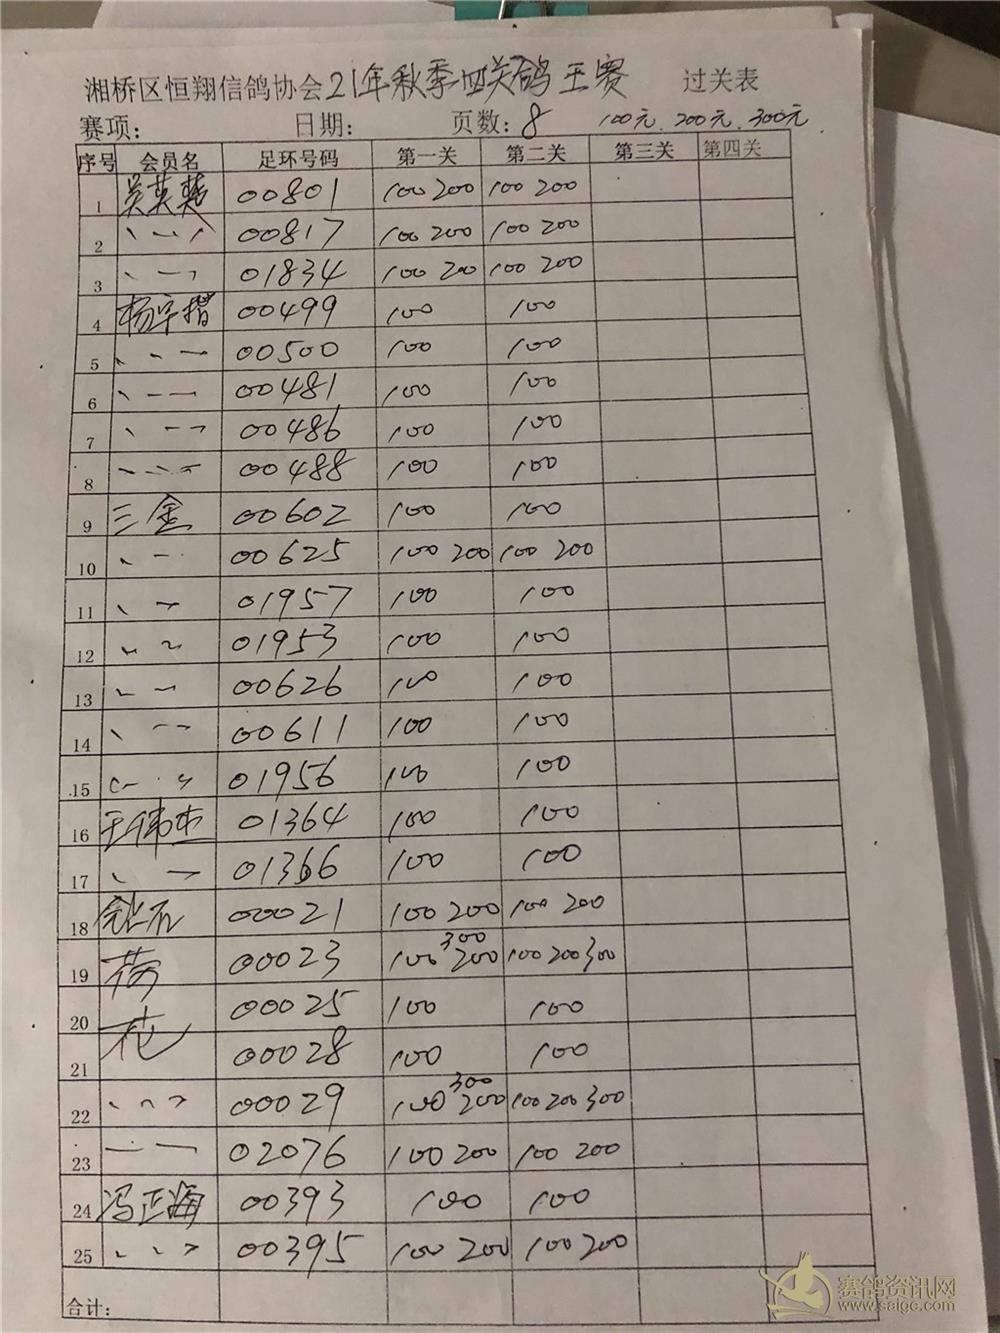 湘桥区恒翔信鸽协会21年秋季四关鸽王赛 过关表
赛项： 日期： 页数：8 100元.200元.300元
序号 会员名 足环号码 第一关 第二关 第三关 第四关
1 吴英 00801 100 200 100 200
2 、一 、 00817 100 200 100 200
3 、一 、 01834 100 200 100 200
4 杨宇 00499 100 100
5 、、一 00500 100 100
6 、一一 00481 100 100
7 、一一 00486 100 100
8 、、、 00488 100 100
9 三金 00602 100 100
10 、一 00625 100 200 100 200
11 、一 01957 100 100
12 、、 01953 100 100
13 、一 00626 100 100
14 、一一 00611 100 100
15 、、 01956 100 100
16 王伟杰 01364 100 100
17 、一 01366 100 100
18 钻石 00021 100 200 100 200
19 荷 00023 100 200 300 100 200 300
20 花 00025 100 100
21 00028 100 100
22 、、、 00029 100 200 300 100 200 300
23 一一 02076 100 200 100 200
24 冯正海 00393 100 100
25 、、、 00395 100 200 100 200
合计：
赛鸽资讯网
www.saige.com